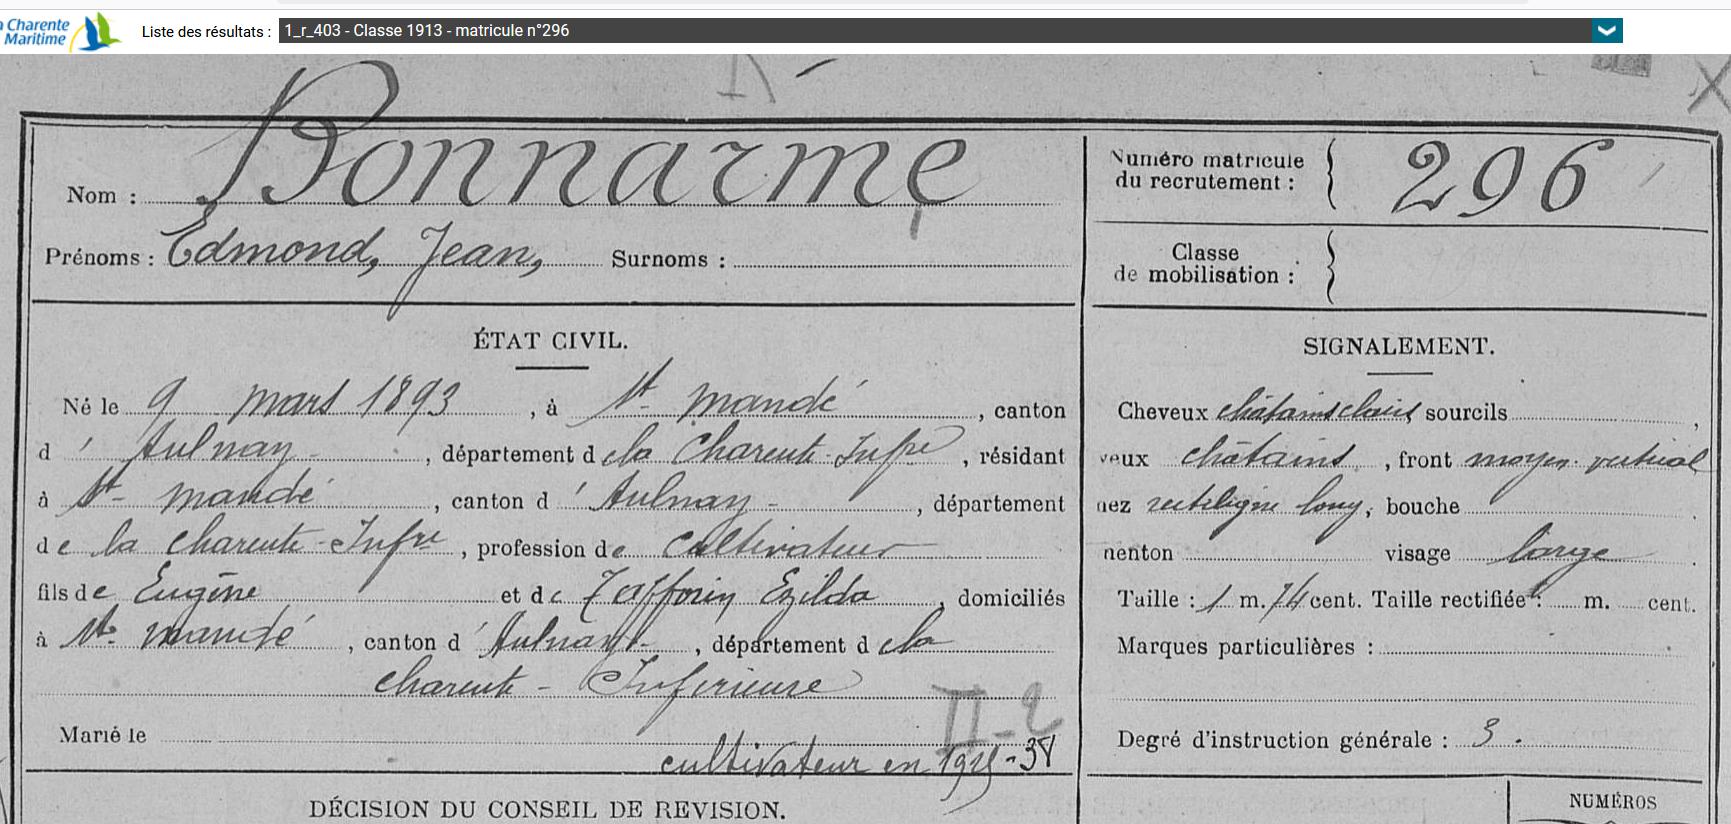 a Charente
Maritime
Liste des résultats : 1_r_403 - Classe 1913 - matricule n°296
Nom : Bonnarme
Numéro matricule
du recrutement : 296
Prénoms : Edmond, Jean, Surnoms :
Classe
de mobilisation :
ÉTAT CIVIL.
Né le 9 mars 1893, à St Mandé, canton
d' Aulnay, département de la Charente-Infre, résidant
à St Mandé, canton d' Aulnay, département
de la Charente-Infre, profession de Cultivateur
fils de Eugène et de Zéfforin Ezilda, domiciliés
à St Mandé, canton d' Aulnay, département de la
Charente-Inférieure
Marié le
II-2
cultivateur en -38
SIGNALEMENT.
Cheveux châtains clairs, sourcils ,
yeux châtains, front moyen vertical
nez rectiligne long, bouche .
menton visage large .
Taille : 1 m. 74 cent. Taille rectifiée : m. cent.
Marques particulières :
Degré d'instruction générale : 3.
DÉCISION DU CONSEIL DE REVISION.
NUMÉROS